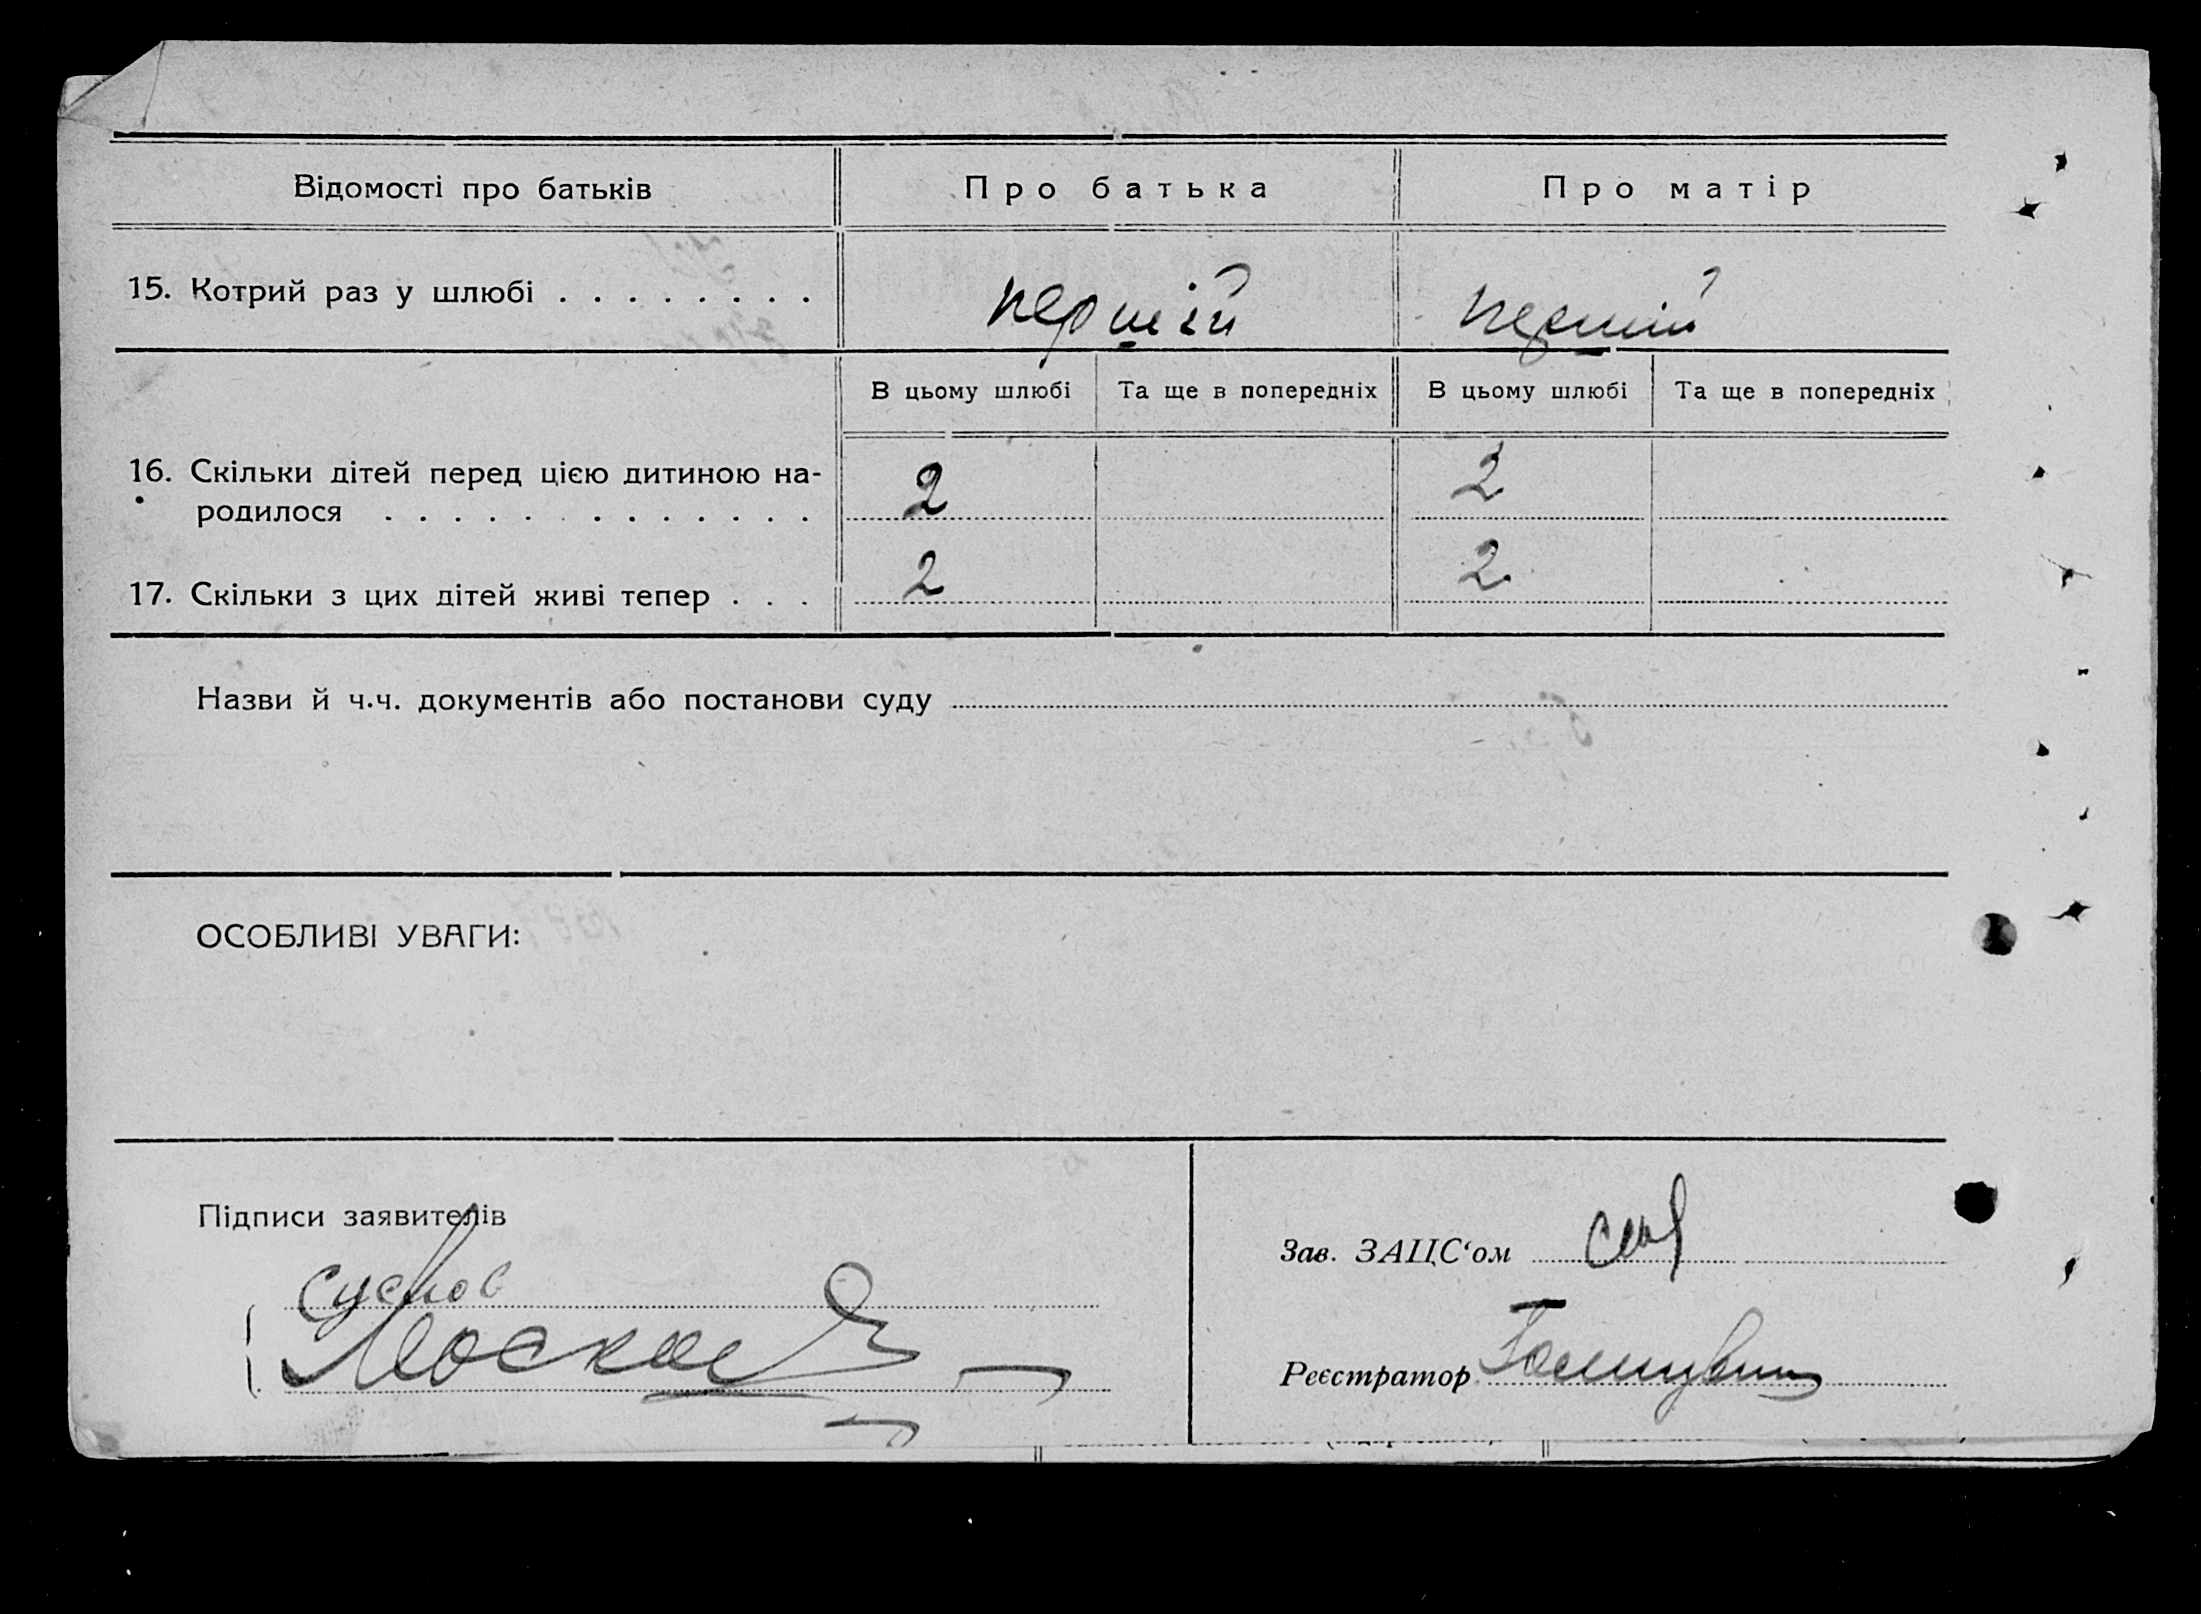 Відомості про батьків
Про батька
Про матір
15. Котрий раз у шлюбі . . . . . . . .
першій
першій
В цьому шлюбі
Та ще в попередніх
В цьому шлюбі
Та ще в попередніх
16. Скільки дітей перед цією дитиною на-
родилося . . . . . . . . . . . . .
2
2
17. Скільки з цих дітей живі тепер . . .
2
2
Назви й ч.ч. документів або постанови суду
ОСОБЛИВІ УВАГИ:
Підписи заявителів
Зав. ЗАЦС‘ом
Реєстратор